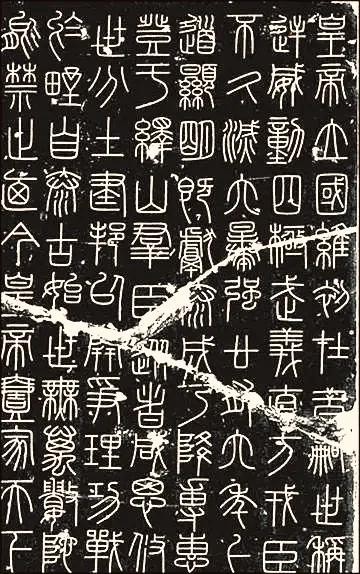 皇帝立國維初在昔嗣世稱
逆威動四極武義直方戎臣
不久滅六暴強廿有六年上
道顯明既獻泰成乃降專惠
登于繹山群臣從者咸思攸
世分土建邦以開爭理功戰
於野自泰古始世無萬數陀
能禁止迺今皇帝壹家天下